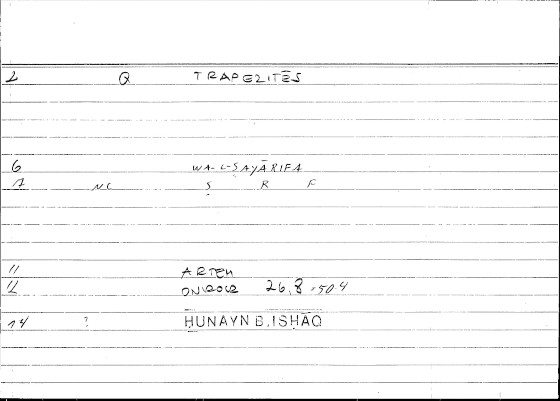 2 Q TRAPEZITĒS
6 WA-L-ṢAYĀRIFA
7 NC Ṣ R F
11 ARTEM
12 ONIROCR 26,8-504
14 ? ḤUNAYN B. ISḤĀQ